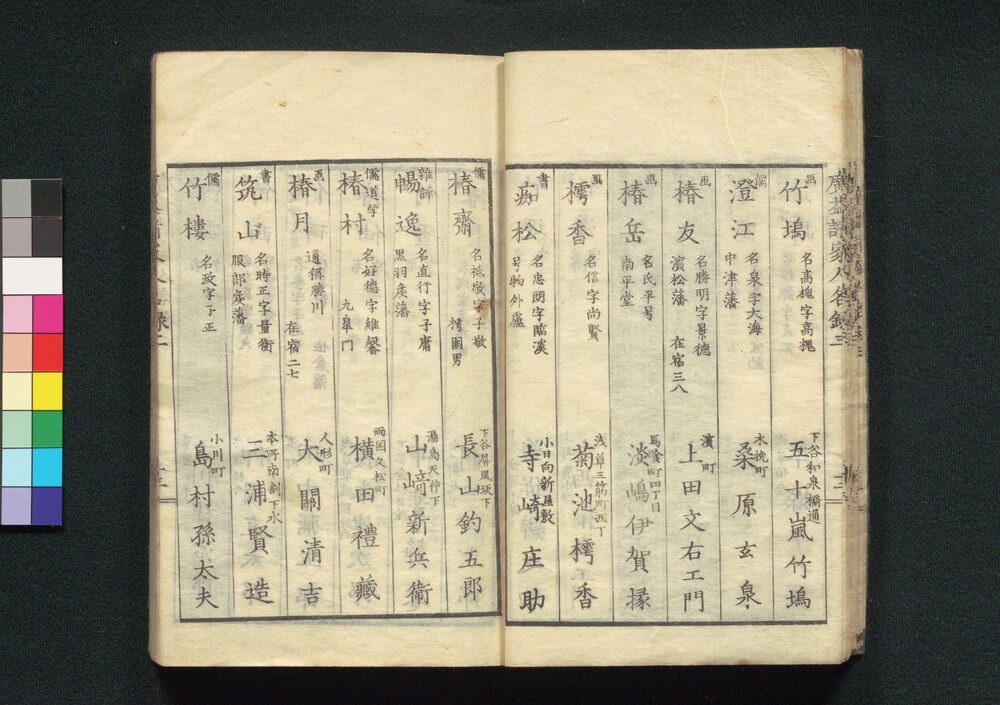 画 竹塢 名高槐字高規 下谷和泉橋通 五十嵐竹塢
儒 澄江 名泉字大海 中津藩 木挽町 桑原玄泉
画 椿友 名勝明字景徳 濱松藩 在宿三八 濱町 上田文右工門
画 椿岳 名氏平号 南平堂 馬喰町四丁目 淡嶋伊賀掾
画 樗香 名信字尚賢 浅草三筋町西丁 菊池樗香
書 痴松 名忠朗字臨溪 号物外廬 小日向新屋敷 寺崎庄助
儒 椿齋 名祗敬字子敬 樗園男 下谷屏風坂下 長山釣五郎
雜詠 暢逸 名直行字子庸 黒羽矦藩 湯島天神下 山﨑新兵衛
儒道学 椿村 名好德字維馨 九皐門 両国久松町 横田禮藏
画 椿月 通稱勝川 在宿二七 人形町 大關清吉
書 筑山 名時正字量衡 服部矦藩 本所南割下水 三浦賢造
儒 竹樓 名政字子正 小川町 島村孫太夫